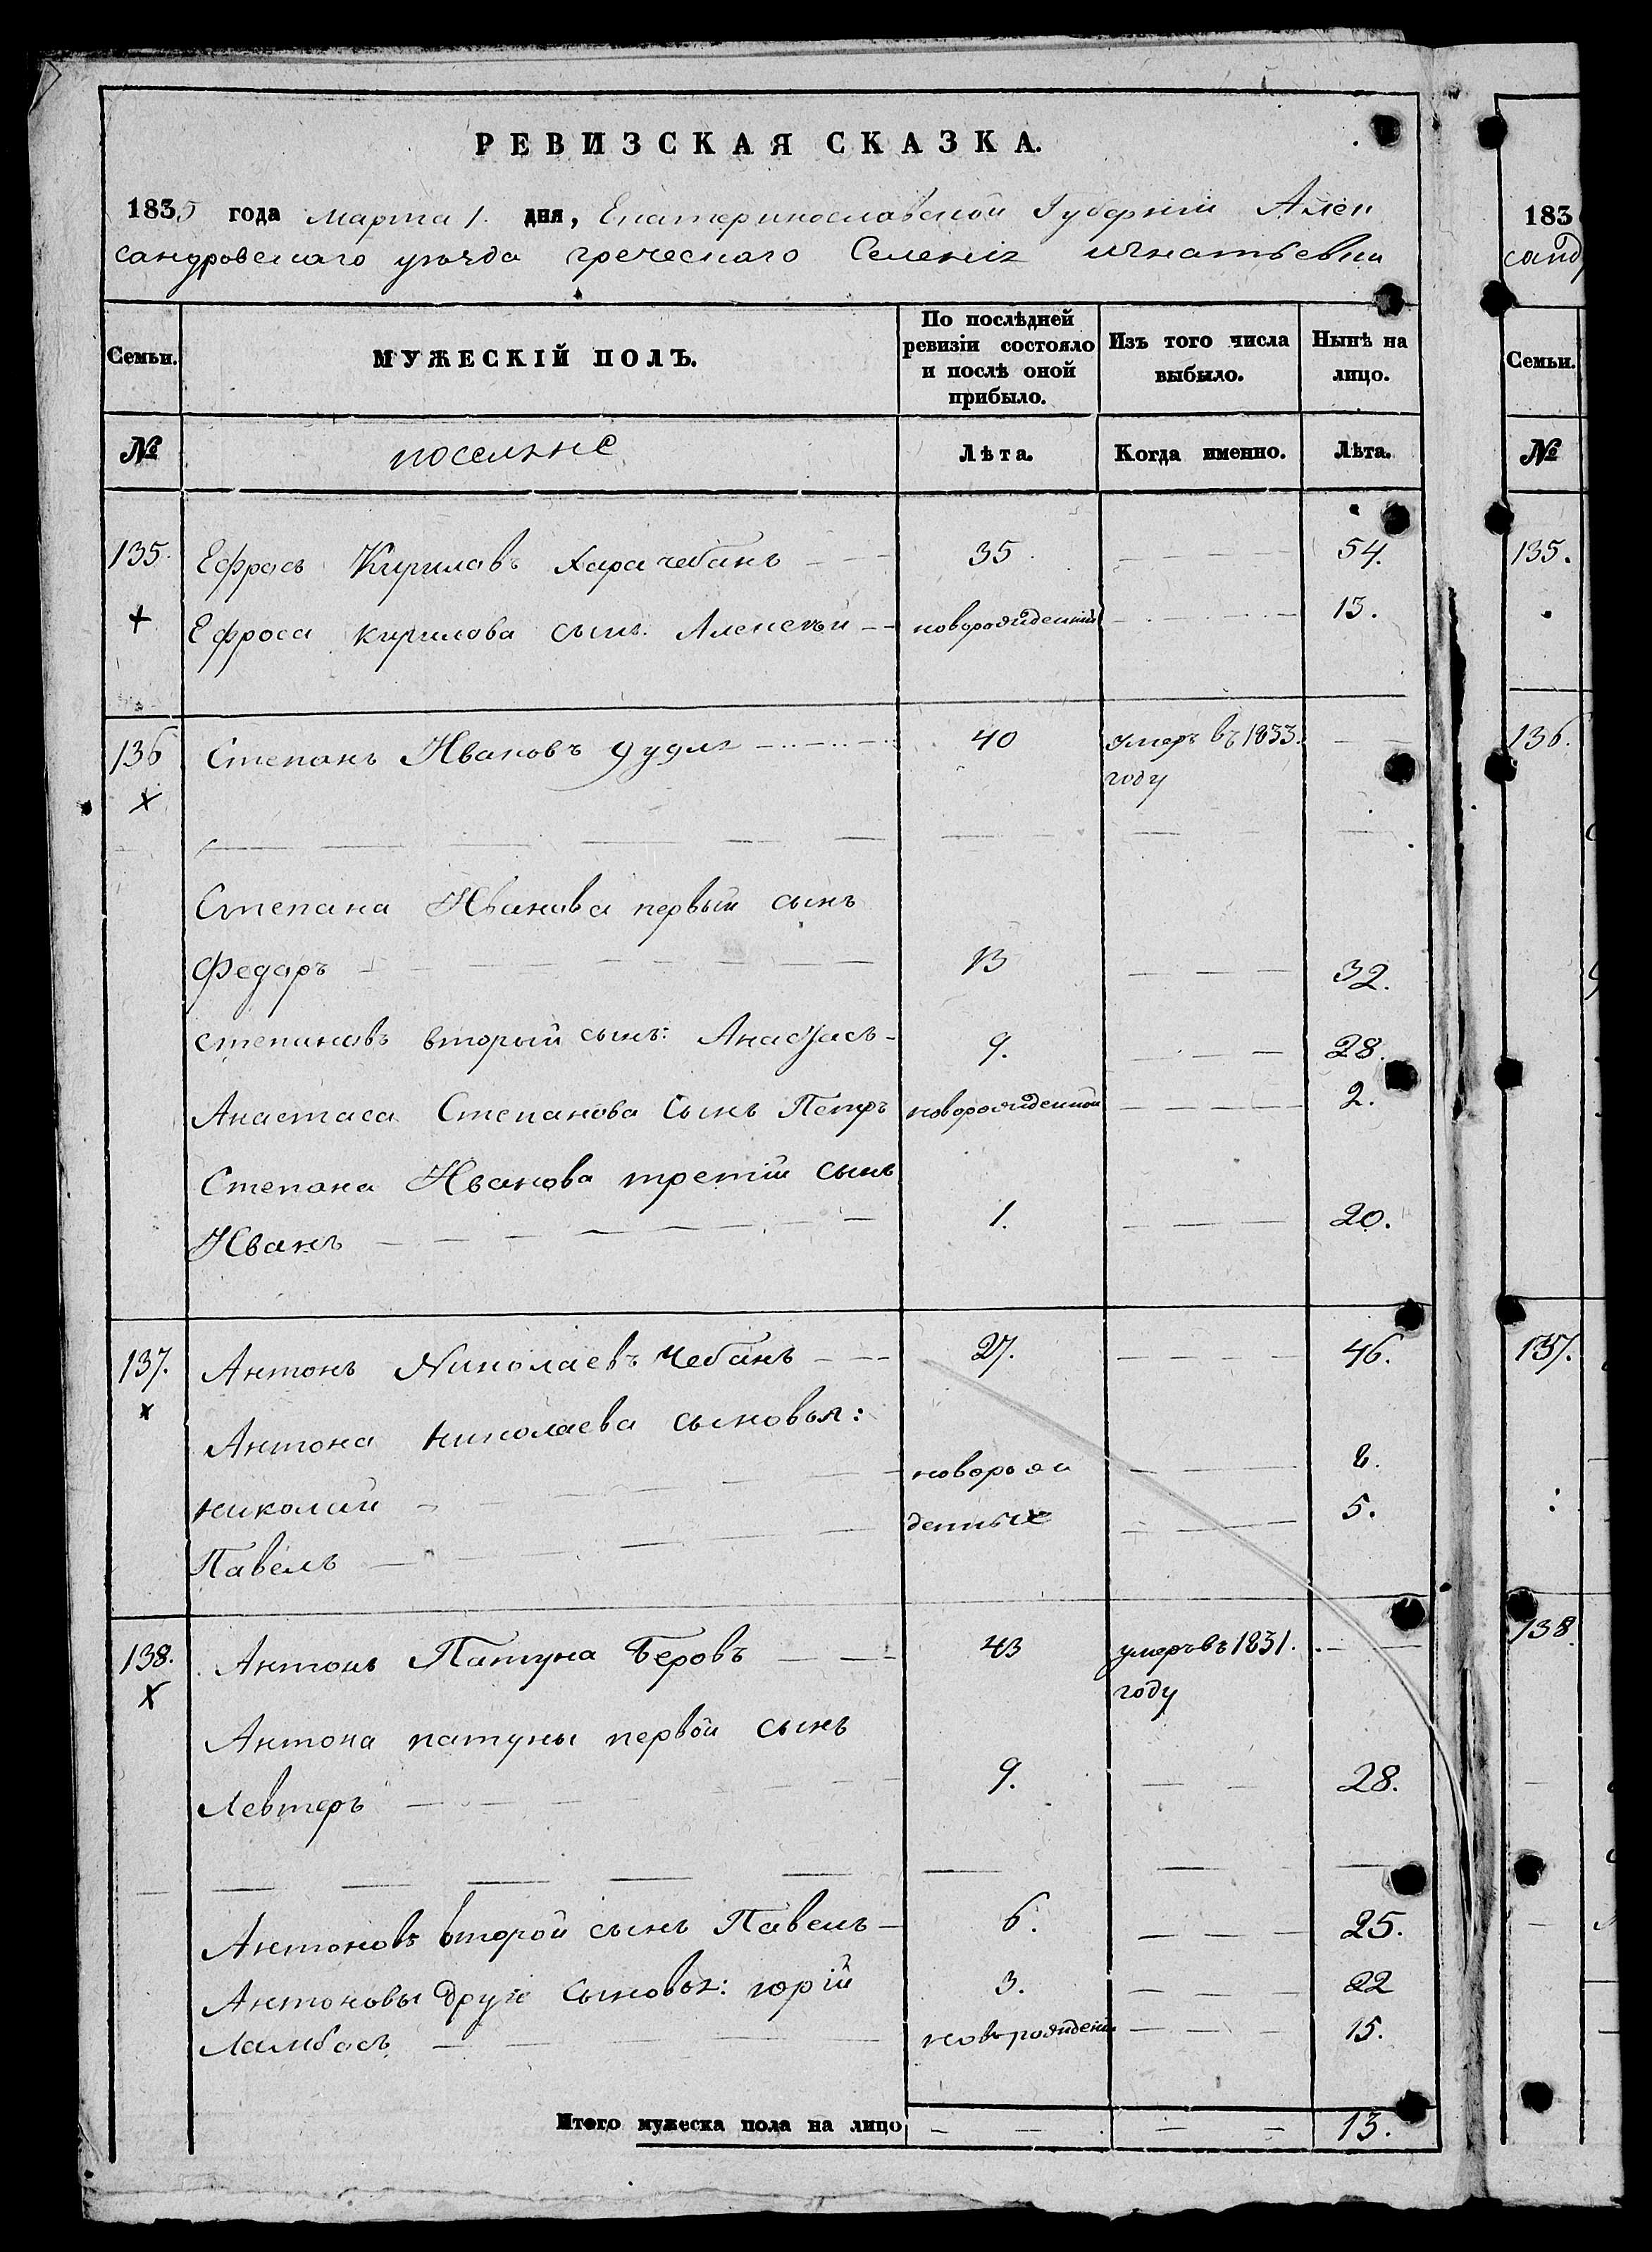 РЕВИЗСКАЯ СКАЗКА.
1835 года марта 1. дня, Екатеринославской Губернии Алек
сандровскаго уѣзда греческаго Селенія Игнатьевки
Семьи. МУЖЕСКІЙ ПОЛЪ. По послѣдней ревизіи состояло и послѣ оной прибыло. Изъ того числа выбыло. Нынѣ на лицо.
№ поселяне Лѣта. Когда именно. Лѣта.
135. Ефрось Кириловъ Харачебанъ 35 54.
Ефроса Кирилова сынъ Алексѣй новорожденный 13.
136 Степанъ Ивановъ 40 умеръ въ 1833.
году
Степана Иванова первый сынъ
Федаръ 13 32.
Степановъ второй сынъ: Анастасъ 9. 28.
Анастаса Степанова Сынъ Петръ новорожденной 2.
Степана Иванова третій сынъ
Иванъ 1. 20.
137. Антонъ Николаевъ Чебанъ 27. 46.
Антона Николаева сыновья:
Николай новорож 8.
Павелъ денные 5.
138. Антонъ Патуна Беровъ 43 умеръ въ 1831.
году
Антона патуны первой сынъ
Левтеръ 9. 28.
Антоновъ второй сынъ Павелъ 6. 25.
Антоновы другіе Сыновья: юрій 3. 22
Ламбось новорожден 15.
Итого мужеска пола на лицо 13.
183
санд
Семьи.
№
135.
136.
137.
138.